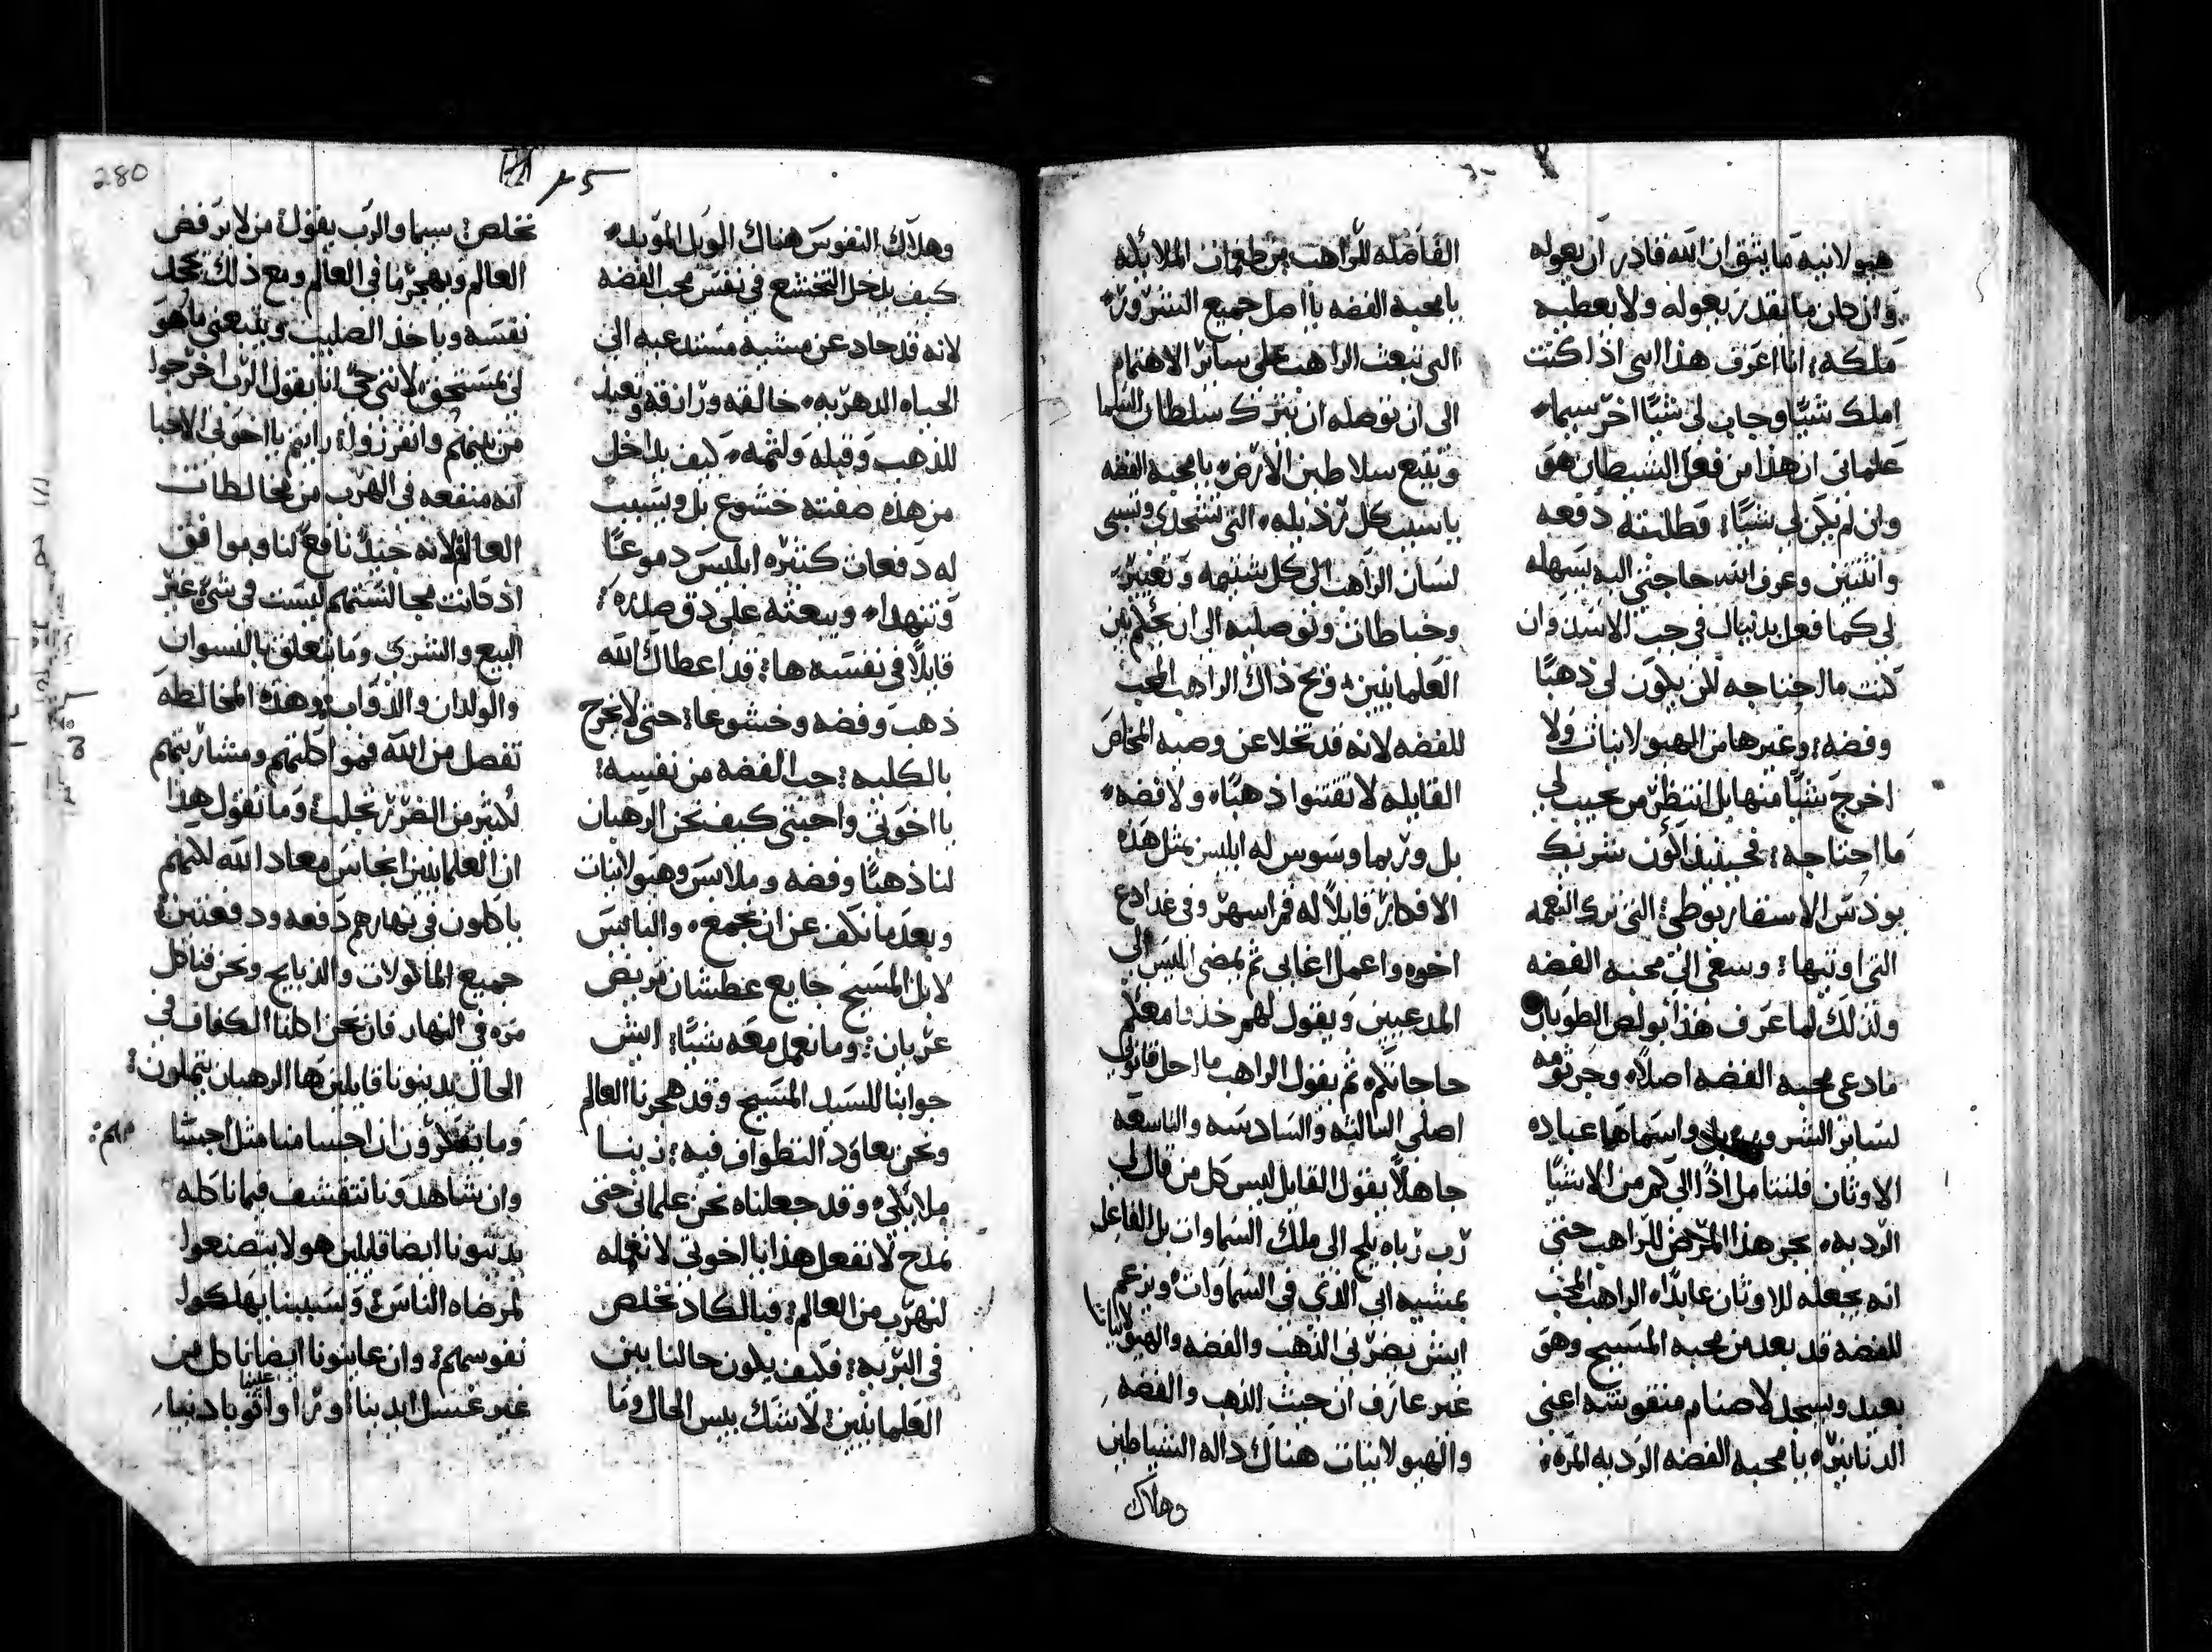 هيولانيه ما يتق ان الله قادر ان يعوله
وان كان ما نقدر يعوله ولا يعطيه
ملكه: انا اعرف هذا انني اذا كنت
املك شيًا وجاب لي شيًا اخر سيما
علماني ان هذا من فعل الشيطان هو
وان لم يكن لي شيًا: فطلبته دفعه
واثنتين وعرف الله حاجتي اليه يسهله
لي كما فعل بدنيال في جب الاسد وان
كنت ما احتاجه لان يكون لي ذهبًا
وفضه: وغيرها من الهيولانيات ولا
اخرج شيًا منها بل انتظر من يجيب لي
ما احتاجه: فحينيذ اكون شريك
يوذس الاسخاريوطي: التي ترك النعمه
التي اوتيها: وسعى الي محبة الفضه
ولذلك لما عرف هذا بولص الطوبان
فادعى محبة الفضه اصلاً وجرثومه
لساير الشرور واسماها عباده
الاوثان فلنتامل اذًا الى كم من الاشيًا
الرديه يجر هذا المرض للراهب حتى
انه يجعله للاوثان عابدًا الراهب المحب
للفضه قد بعد من محبه المسيح وهو
يعبد ويسجد لاصنام منقوشه اعني
الدنانير يا محبه الفضه الرديه المره
الفاصله للراهب من طغمات الملايكه
يا محبة الفضه يا اصل جميع الشرور
التي تبعث الراهب على ساير الاهتمام
الى ان توصله ان يترك سلطان السما
ويتبع سلاطين الارض يا محبة الفضه
يا سبب كل رذيله التي تستجدي وتسبي
لسان الراهب الى كل شتيمه وتعيير
وخباطات وتوصليه الى ان يحاكم بين
العلمانيين ويح ذاك الراهب المحب
للفضه لانه قد تخلا عن وصية المخلص
القايله لا تقتنوا ذهبًا ولا فضه
بل وربما وسوس له ابليس بمثل هذه
الافكار قايلاً له قم اسهر وفي غد ادع
اخوه واعمل اغابي ثم يمضي ابليس الى
المدعيين ويقول لهم خذوا معكم
حاجاتكم ثم يقول الراهب ما احل قانوني
اصلي الثالثه والسادسه والتاسعه
جاهلاً بقول القايل ليس كل من قال لي
رب رباه يلج الى ملك السماوات بل الفاعل
بمشيه ابي الذي في السماوات ويزعم
ايش يضرني الذهب والفضه والهيولانيات
غير عارف ان حيث الذهب والفضه
والهيولانيات هناك دالة الشياطين
وهلاك
280
وهلاك النفوس هناك الويل الموبد
كيف يدخل التخشع في نفس محب الفضه
لانه قد حاد عن مشية مستدعيه الى
الحياه الدهريه خالقه ورازقه وتعبد
للذهب وقبله ولثمه كيف يداخل
من هذه صفته خشوع بل ويسبب
له دفعات كثيره ابليس دموعًا
وتنهدًا ويبعثه على دق صدره:
قايلاً في نفسه ها: قد اعطاك الله
ذهب وفضه وخشوعا: حتى لا يخرج
بالكليه: حب الفضه من نفسه:
يا اخوتي واحبتي كيف نحن الرهبان
لنا ذهبًا وفضه وملابس وهيولانيات
وبعد ما نكف عن ان نجمع والبايس
لابل المسيح جايع عطشان مريض
عريان: وما نعمل معه شيًا: ايش
جوابنا للسيد المسيح وقد هجرنا العالم
ونحن نعاود التطواف فيه: زينا
ملايكي وقد جعلناه نحن علماني حتى
نمدح لا نفعل هذا يا اخوتي لا نفعله
لنهرب من العالم: فبالكاد نخلص
في البريه: فكيف يكون حالنا بين
العلمانيين: لا شك بيس الحال وما
نخلص: سيما والرب يقول: من لا يرفض
العالم ويهجر ما في العالم ومع ذلك يجحد
نفسه وياخذ الصليب ويتبعني ما هو
لي بمستحق لانني حي انا يقول الرب اخرجوا
من بينهم وانفرزوا: رايتم يا اخوتي الاحبا
انه منفعه في الهرب من مخالطات
العالم لانه جيدٌ نافعٌ لنا وموافق
اذ كانت مجالستهم ليست في شي غير
البيع والشري وما يتعلق بالنسوان
والولدان والدواب: وهذه المخالطه
تفصل من الله فمواكلتهم ومشاربتهم
لكثير من الضرر تجلب: وما نقول هذا
ان العلمانيين انجاس معاد الله لكنهم
ياكلون في نهارهم دفعه ودفعتين:
جميع الماكولات والذبايح ونحن فناكل
مره في النهار فان نحن اكلنا الكفاف في
الحال يدينونا قايلين ها الرهبان يتملون:
وما يفكرون ان احسامنا مثل اجسامهم:
وان شاهدونا نتقشف فيما ناكله
يدينونا ايضا قايلين هولا يتصنعوا
لمرضاه الناس: وبسببنا يهلكوا
نفوسهم: وان عاينونا ايضا ناكل من
غير غسل ايدينا: اوراوا علينا اثوبا دنيا